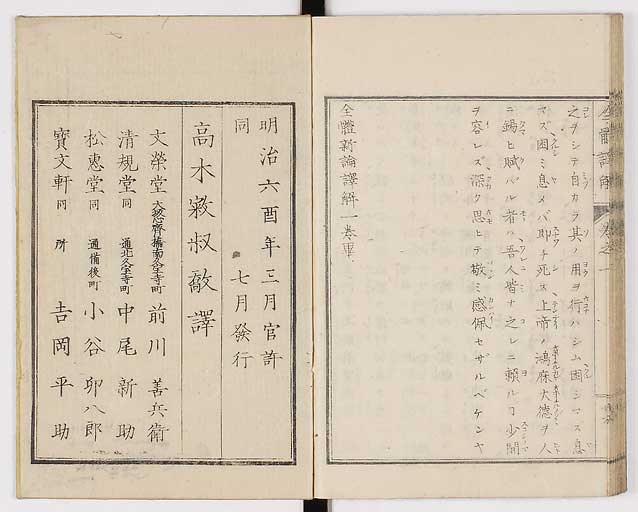 全體譯解
卷之一
之ヲシテ自カラ其ノ用ヲ行ハシム困シマズ息
マズ困ミ息メバ即チ死ス上帝ノ鴻庥大德ヲ人
ニ錫ヒ賦ハル者ハ吾人皆ナ之レニ賴ルヿ少間
ヲ容レズ深ク思ヒテ敬ミ感佩セザルベケンヤ
全體新論譯解一卷畢
明治六酉年三月官許
同 七月發行
高木 叔敵譯
文榮堂 前川善兵衛
清規堂 同 通北久宝寺町 中尾新助
松惠堂 同 通備後町 小谷卯八郎
寶文軒 同 所 吉岡平助